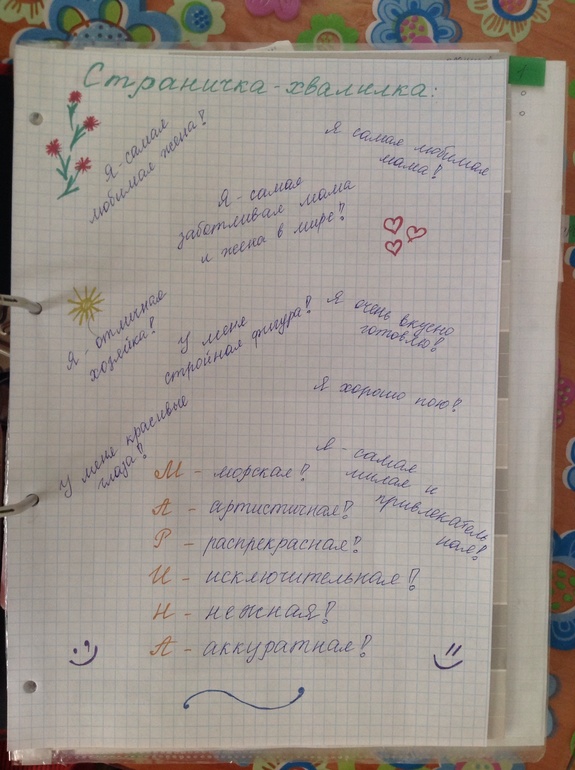 Страничка-хвалилка:
Я - самая
любимая жена!
Я самая любимая
мама!
Я - самая
заботливая мама
и жена в мире!
Я - отличная
хозяйка!
У меня
стройная фигура!
Я очень вкусно
готовлю!
Я хорошо пою!
У меня красивые
глаза!
Я - самая
милая и
привлекатель
ная!
М - морская!
А - артистичная!
Р - распрекрасная!
И - исключительная!
Н - нежная!
А - аккуратная!
1